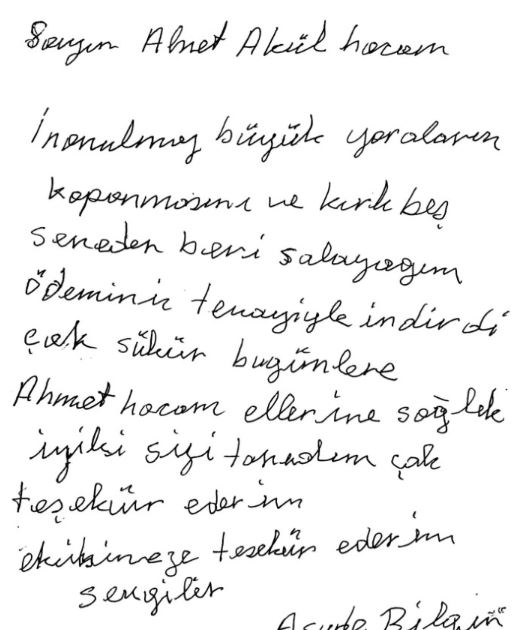 Sayın Ahmet Akül hocam
İnanılmaz büyük yaraların
kapanmasını ve kırk beş
seneden beri şalayağım
ödeminin tenayiyle indirdi
çok şükür bugünlere
Ahmet hocam ellerine sağlık
iyiki sizi tanıdım çok
teşekür ederim
ekibinize tesekür ederim
sevgiler
Bilgin